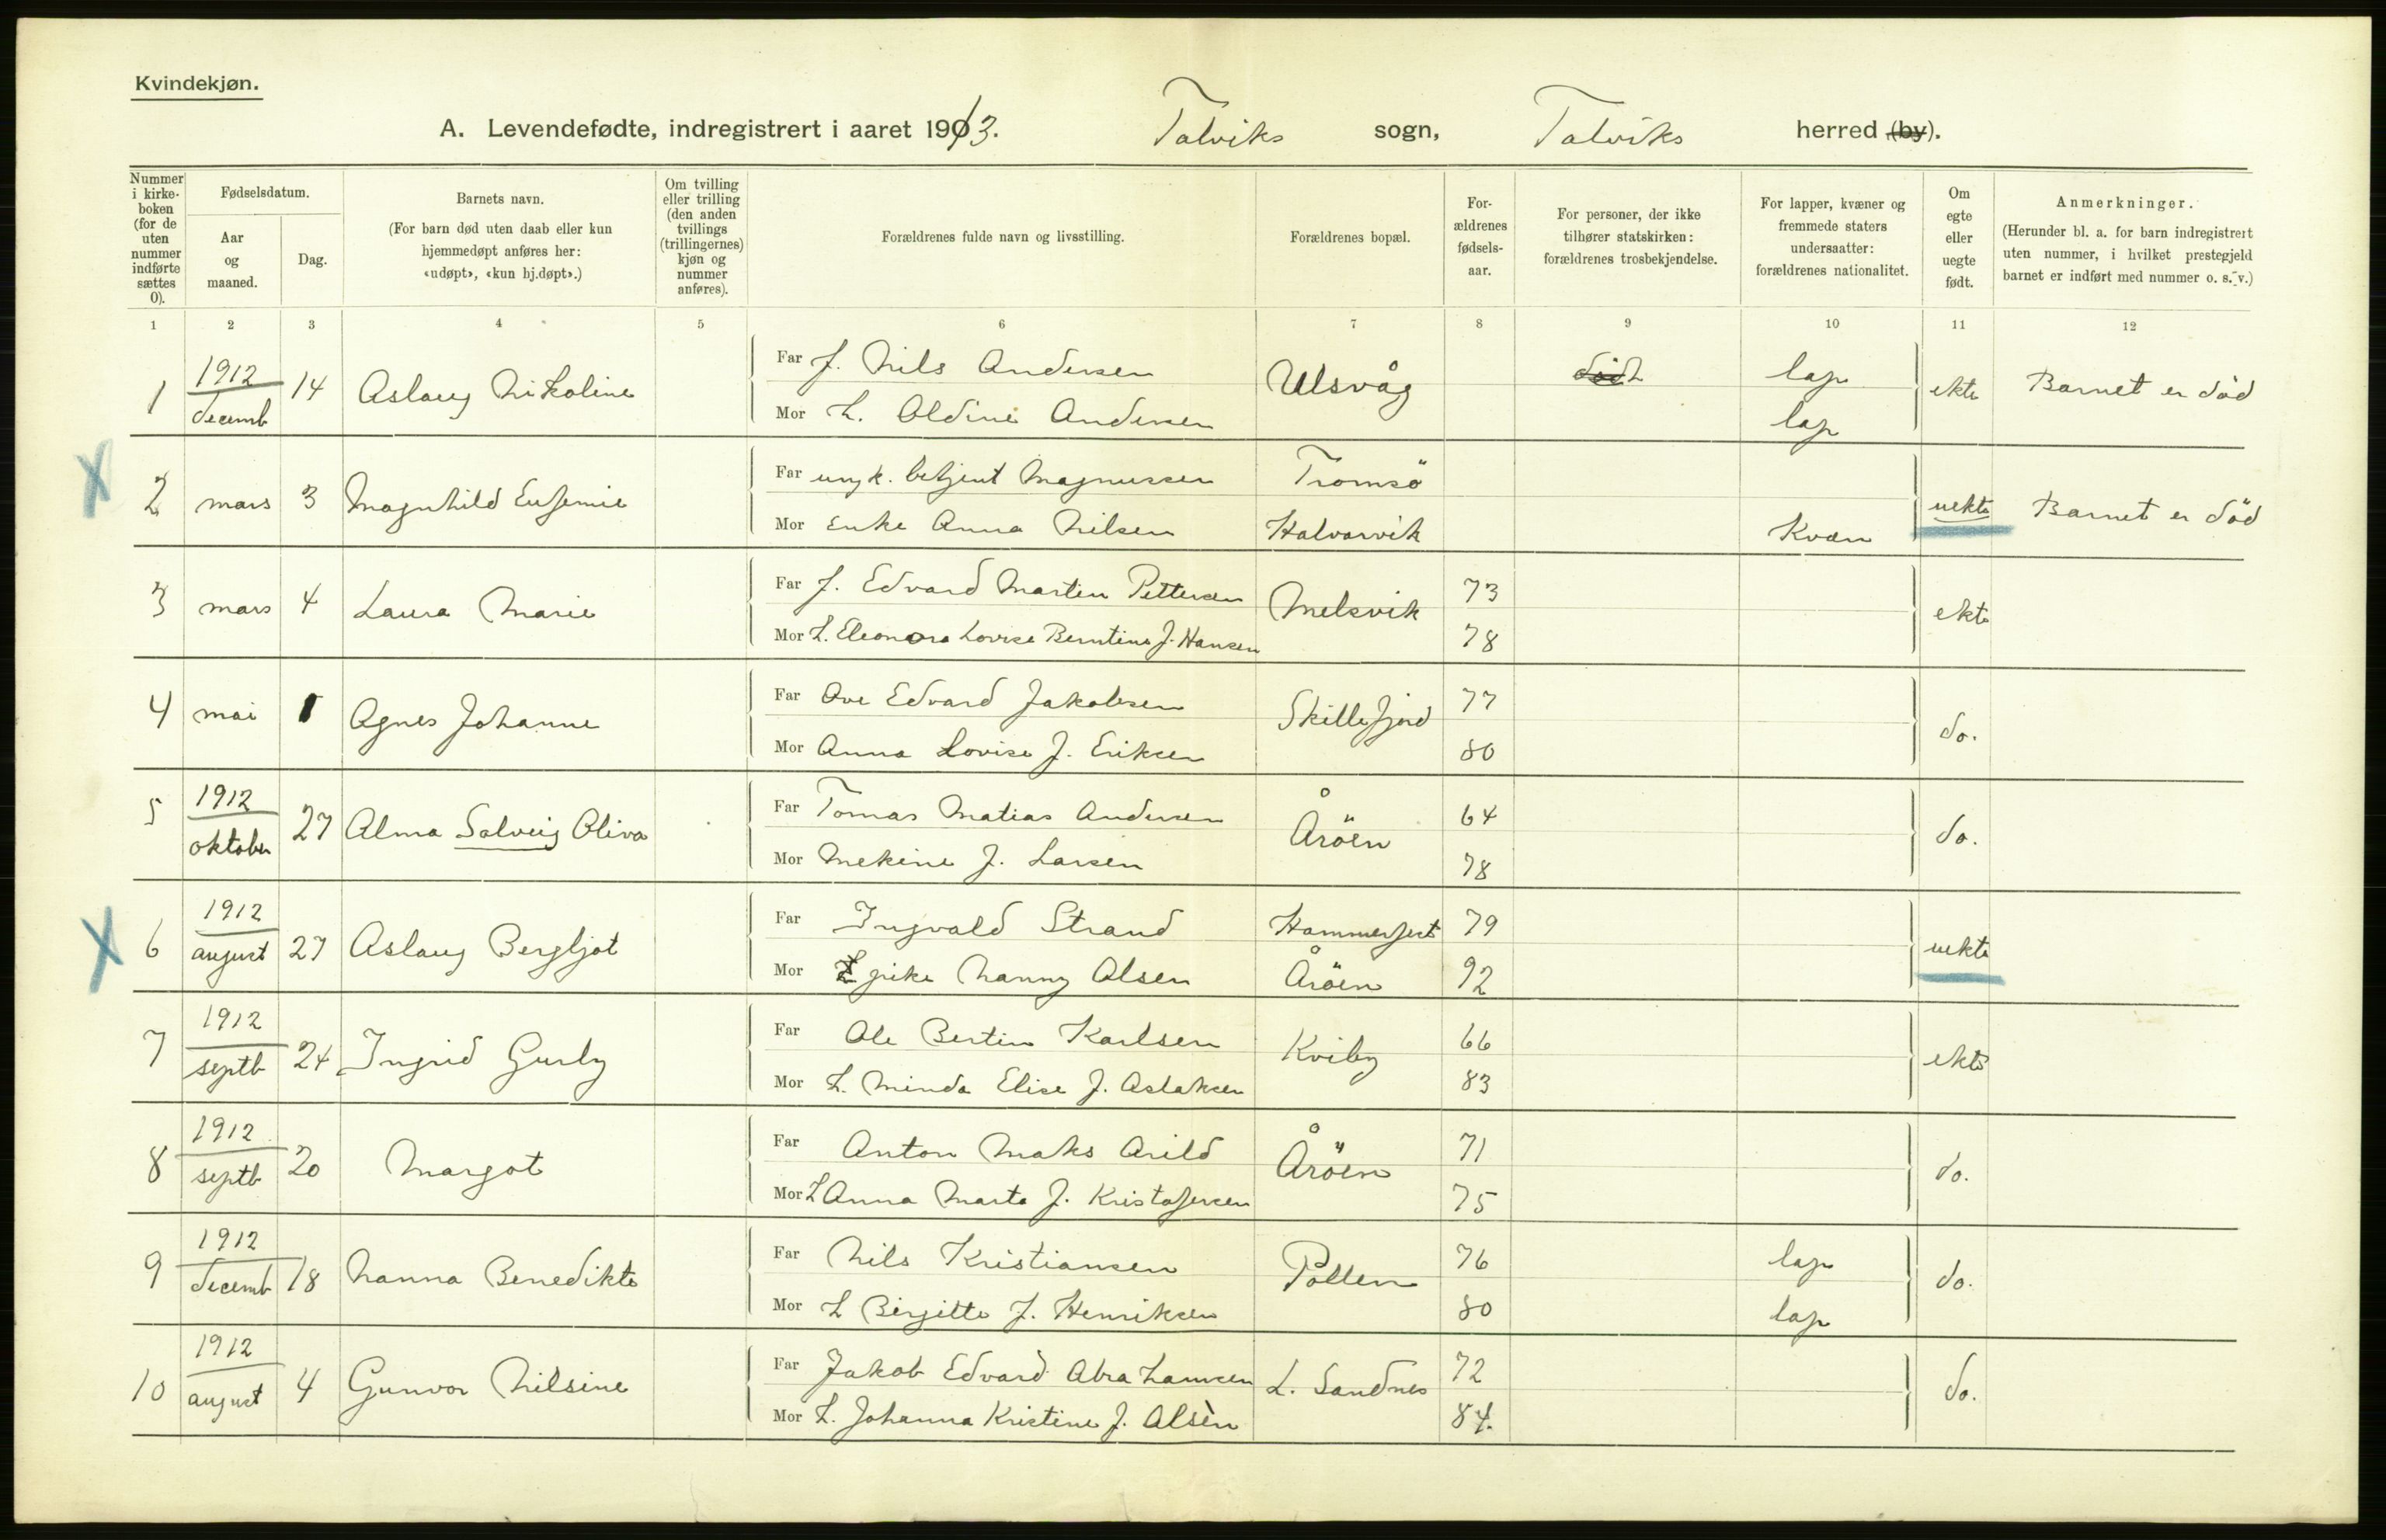 Kvindekjøn.
A. Levendefødte, indregistrert i aaret 1913. Talviks sogn, Talviks herred (by).
Nummer i kirkeboken (for de uten nummer indførte sættes 0).
Fødselsdatum.
Aar og maaned.
Dag.
Barnets navn.
(For barn død uten daab eller kun hjemmedøpt anføres her: «udøpt», «kun hj.døpt».)
Om tvilling eller trilling (den anden tvillings (trillingernes) kjøn og nummer anføres).
Forældrenes fulde navn og livsstilling.
Forældrenes bopæl.
For-ældrenes fødsels-aar.
For personer, der ikke tilhører statskirken: forældrenes trosbekjendelse.
For lapper, kvæner og fremmede staters undersaatter: forældrenes nationalitet.
Om egte eller uegte født.
Anmerkninger.
(Herunder bl. a. for barn indregistrert uten nummer, i hvilket prestegjeld barnet er indført med nummer o. s. v.)
1 2 3 4 5 6 7 8 9 10 11 12
1 1912 decemb 14 Aslaug Nikoline Far f. Nils Andersen Ulsvåg lap ekte Barnet er död
Mor h. Aldine Andersen lap
2 mars 3 Magnhild Eufemie Far ungk. betjent Magnussen Tromsö uekte Barnet er död
Mor Enke Anna Nilsen Halvarvik Kvæn
3 mars 4 Laura Marie Far f. Edvard Martin Pettersen Melsvik 73 ekte
Mor h. Eleonora Lovise Berntine f. Hansen 78
4 mai Agnes Johanne Far Ove Edvard Jakobsen Skillefjord 77 do.
Mor Anna Lovise f. Eriksen 80
5 1912 oktober 27 Alma Solveig Oliva Far Tomas Matias Andersen Åröen 64 do.
Mor Mekine f. Larsen 78
6 1912 august 27 Aslaug Bergljot Far Ingvald Strand Hammerfest 79 uekte
Mor pike Nanny Olsen Åröen 92
7 1912 septb 24 Ingrid Gurly Far Ole Bertin Karlsen Kviby 66 ekte
Mor h. Minda Elise f. Aslaksen 83
8 1912 septb 20 Margot Far Anton Maks Arild Åröen 71 do.
Mor h Anna Marta f. Kristofersen 75
9 1912 decemb 18 Nanna Benedikte Far Nils Kristiansen Pollen 76 lap do.
Mor h Birgitte f. Henriksen 80 lap
10 1912 august 4 Gunvor Nilsine Far Jakob Edvard Abrahamsen L. Sandnes 72 do.
Mor h. Johanna Kristine f. Olsen 84.